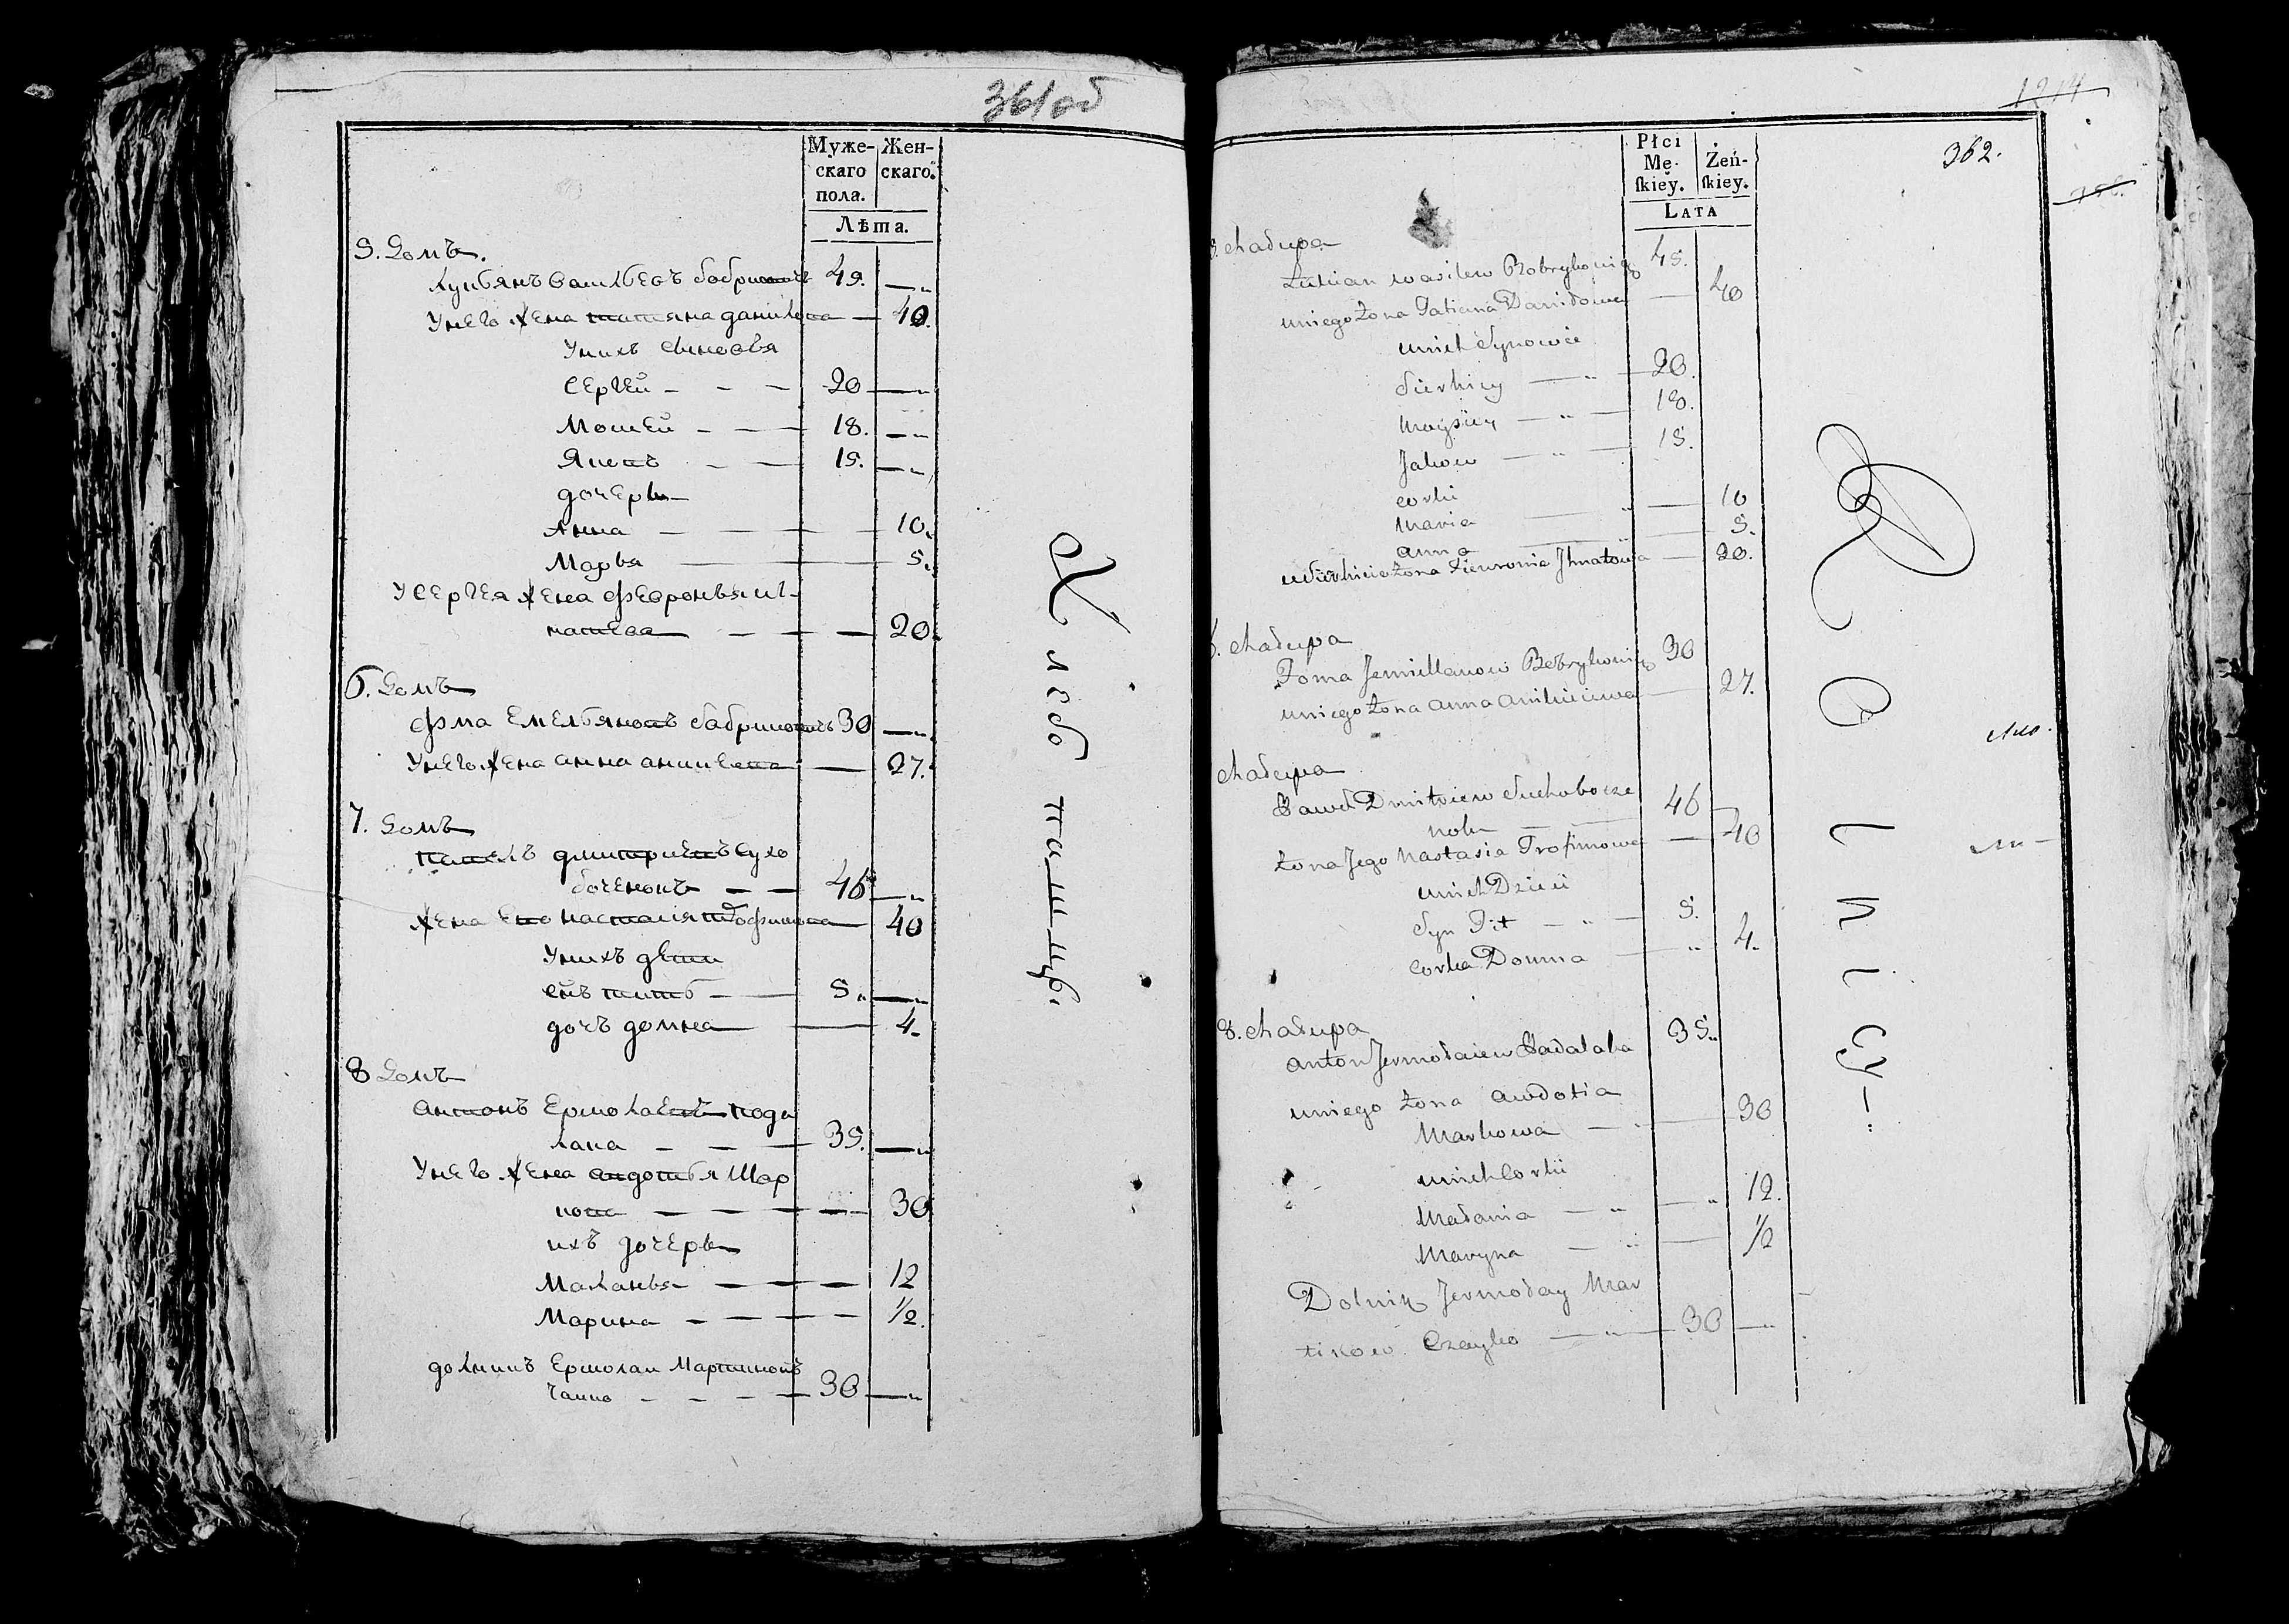 361об
Муже-
скаго
пола.
Жен-
скаго.
Лѣта.
5. домъ.
Лукьянъ Васильевъ бобриковъ 45. —
У него жена татьяна данилова — 40.
У нихъ сыновья
Сергей - - - 20 —
Мосей - - - 18. —
Яковъ - - 15. —
дочери
Анна — 10.
Марья — 5.
У Сергея жена февронья иг-
натева — 20.
6. домъ
фма Емельяновъ бобриковичъ 30 —
У него жена анна аникеева — 27.
7. домъ
павелъ дмитриевъ Сухо
боченокъ — 46 —
жена Его настасия трофимова — 40
У нихъ дети
сынъ титъ — 5. —
дочъ домна — 4.
8 домъ
антонъ Ермолаевъ пода
лака — 35. —
У него жена авдотья Мар
кова — 30
ихъ дочери
Маланья — 12
Марина — 1/2.
долникъ Ермолаи Мартиновъ
Чайко - - - 30 —
Хлебопашцы.
1214
362.
Płci
Mę-
ſkiey.
Żeń-
ſkiey.
LATA
5. chałupa
Łukian wasilew Bobrykowicz 45.
u niego Żona Tatiana Daniłowa — 40
u nich Synowie
Sierhiey — 20.
Moysiey — 18.
Jakow — 15.
corki
Maria — 10
anna — 5.
u Sierhieia Żona Fiewronia Jhnatowa — 20.
6. chałupa
Foma Jemillanow Bobrykowicz 30
u niego Żona anna anikieiewa — 27.
chałupa
Paweł Dmitriew Suchobocze
nok — 46
Żona Jego Nastasia Trofimowa — 40
u nich Dzieci
Syn Tit — 5.
corka Domna — 4.
8. chałupa
anton Jermołaiew Padalaka 35.
u niego Żona awdotia
Markowa — 30
u nich Corki
Małania — 12.
Maryna — 1/2
Dolnik Jermołay Mar
tinow Czayko — 30 —
Rolnicy